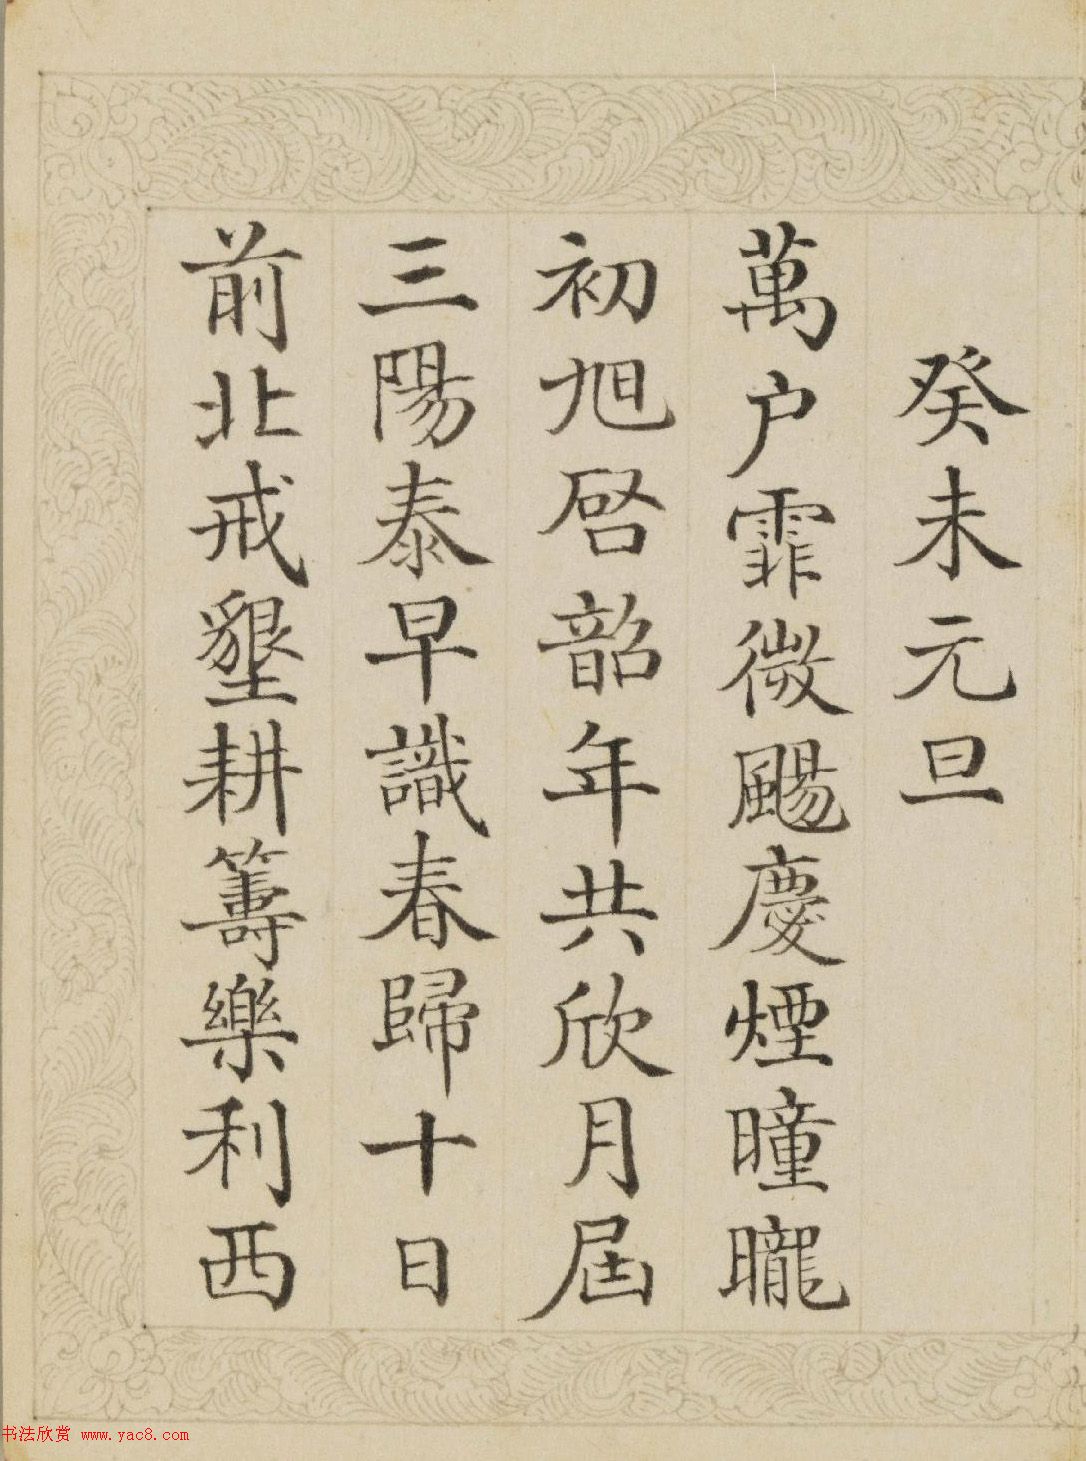 癸未元旦
萬户霏微颺慶煙曈曨
初旭啓韶年共欣月屆
三陽泰早識春歸十日
前北戒墾耕籌樂利西
书法欣赏 www.yac8.com